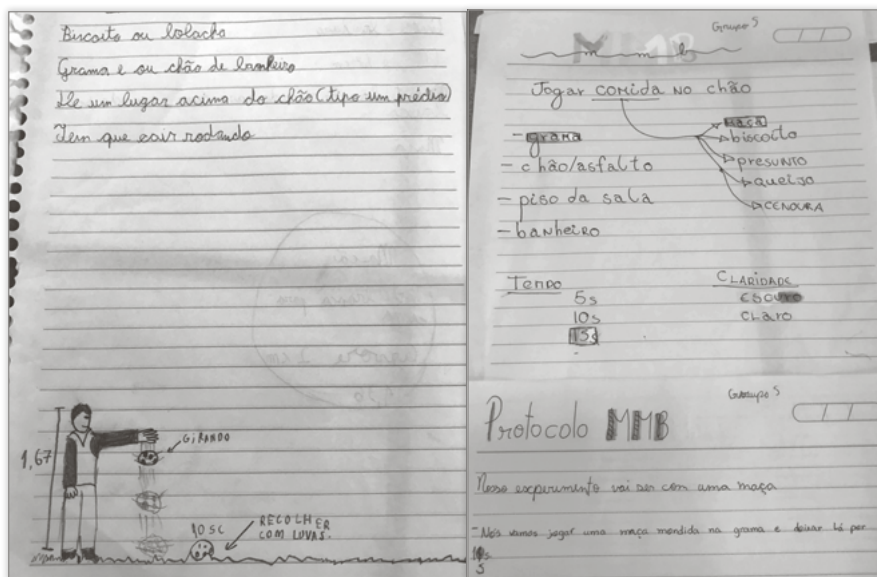 Biscoito ou bolacha
Grama e ou chão de banheiro
De um lugar acima do chão (tipo um prédio)
Tem que sair rodando
1,67
GIRANDO
10 sc
RECOLHER
COM LUVAS.
Grupo 5
MMB
Jogar comida no chão
- grama
- chão/asfalto
- piso da sala
- banheiro
maçã
biscoito
presunto
queijo
CENOURA
Tempo
5s
10s
15s
CLARIDADE
escuro
claro
Grupo 5
Protocolo MMB
Nosso experimento vai ser com uma maçã
- Nós vamos jogar uma maçã mordida na grama e deixar lá por
5